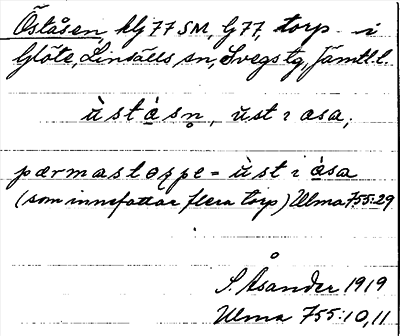 Öståsen hlj 77 SM, G77, torp i
Glöte, Linsälls sn, Svegs tg, Jämtl. l.
ùstásn̥, ùst ı asa;
pærmastɵppe = ùst ı ása
(som innefattar flera torp) Ulma 755:29
Å
S. Åsander 1919
Ulma 755:10,11